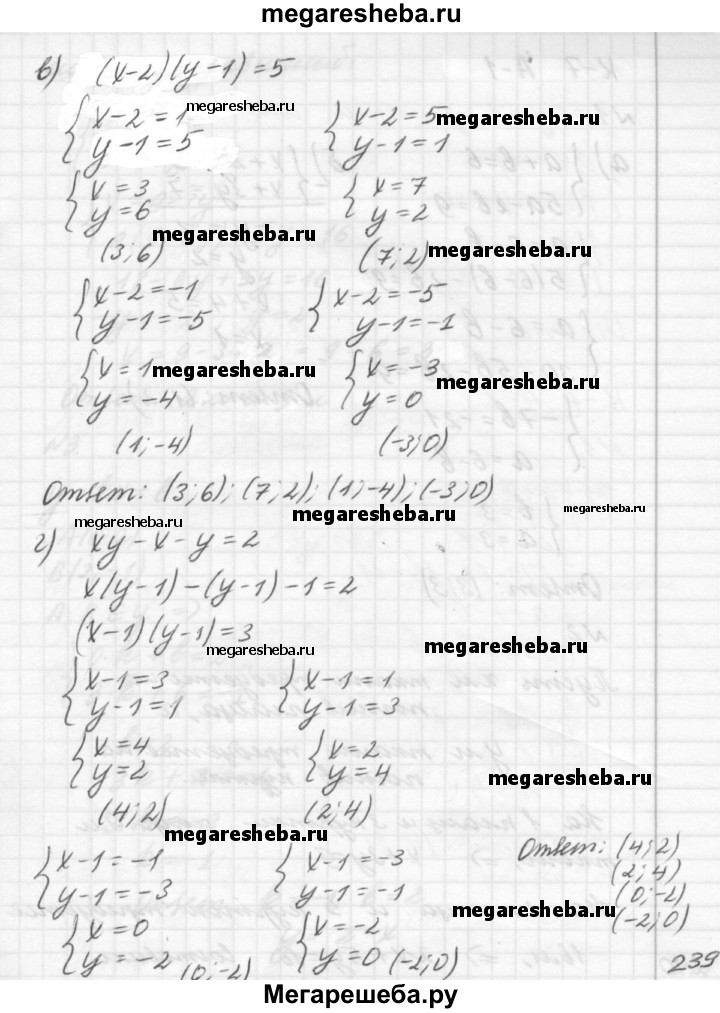 megaresheba.ru
в) (x-2)(y-1)=5
{x-2=1 megaresheba.ru {x-2=5 megaresheba.ru
y-1=5 y-1=1
{x=3 {x=7
y=6 y=2
megaresheba.ru
(3;6) (7;2) megaresheba.ru
{x-2=-1 {x-2=-5
y-1=-5 y-1=-1
{x=1 megaresheba.ru {x=-3 megaresheba.ru
y=-4 y=0
(1;-4) (-3;0)
Ответ: (3;6); (7;2); (1;-4); (-3;0)
megaresheba.ru megaresheba.ru megaresheba.ru
г) xy-x-y=2
x(y-1)-(y-1)-1=2
(x-1)(y-1)=3
megaresheba.ru megaresheba.ru
{x-1=3 {x-1=1
y-1=1 y-1=3
{x=4 {x=2
y=2 y=4
megaresheba.ru
(4;2) (2;4)
megaresheba.ru
{x-1=-1 {x-1=-3 Ответ: (4;2)
y-1=-3 y-1=-1 (2;4)
(0;-2)
megaresheba.ru
(-2;0)
{x=0 {x=-2
y=-2 (0;-2) y=0 (-2;0)
239
Мегарешеба.ру